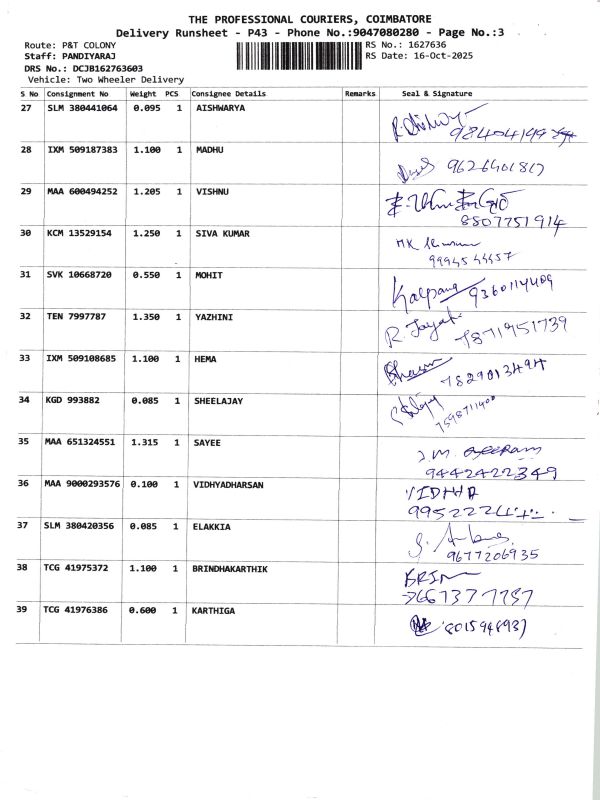 THE PROFESSIONAL COURIERS, COIMBATORE
Delivery Runsheet - P43 - Phone No.:9047080280 - Page No.:3
Route: P&T COLONY
RS No.: 1627636
Staff: PANDIYARAJ
RS Date: 16-Oct-2025
DRS No.: DCJB162763603
Vehicle: Two Wheeler Delivery
S No Consignment No Weight PCS Consignee Details Remarks Seal & Signature
27 SLM 380441064 0.095 1 AISHWARYA
28 IXM 509187383 1.100 1 MADHU
9626401817
29 MAA 600494252 1.205 1 VISHNU
8507751914
30 KCM 13529154 1.250 1 SIVA KUMAR
99945 44457
31 SVK 10668720 0.550 1 MOHIT
Kalpana 9360114409
32 TEN 7997787 1.350 1 YAZHINI
7871951739
33 IXM 509108685 1.100 1 HEMA
7829013494
34 KGD 993882 0.085 1 SHEELAJAY
7598711400
35 MAA 651324551 1.315 1 SAYEE
9442422349
36 MAA 9000293576 0.100 1 VIDHYADHARSAN
VIDHYA
37 SLM 380420356 0.085 1 ELAKKIA
9677206935
38 TCG 41975372 1.100 1 BRINDHAKARTHIK
39 TCG 41976386 0.600 1 KARTHIGA